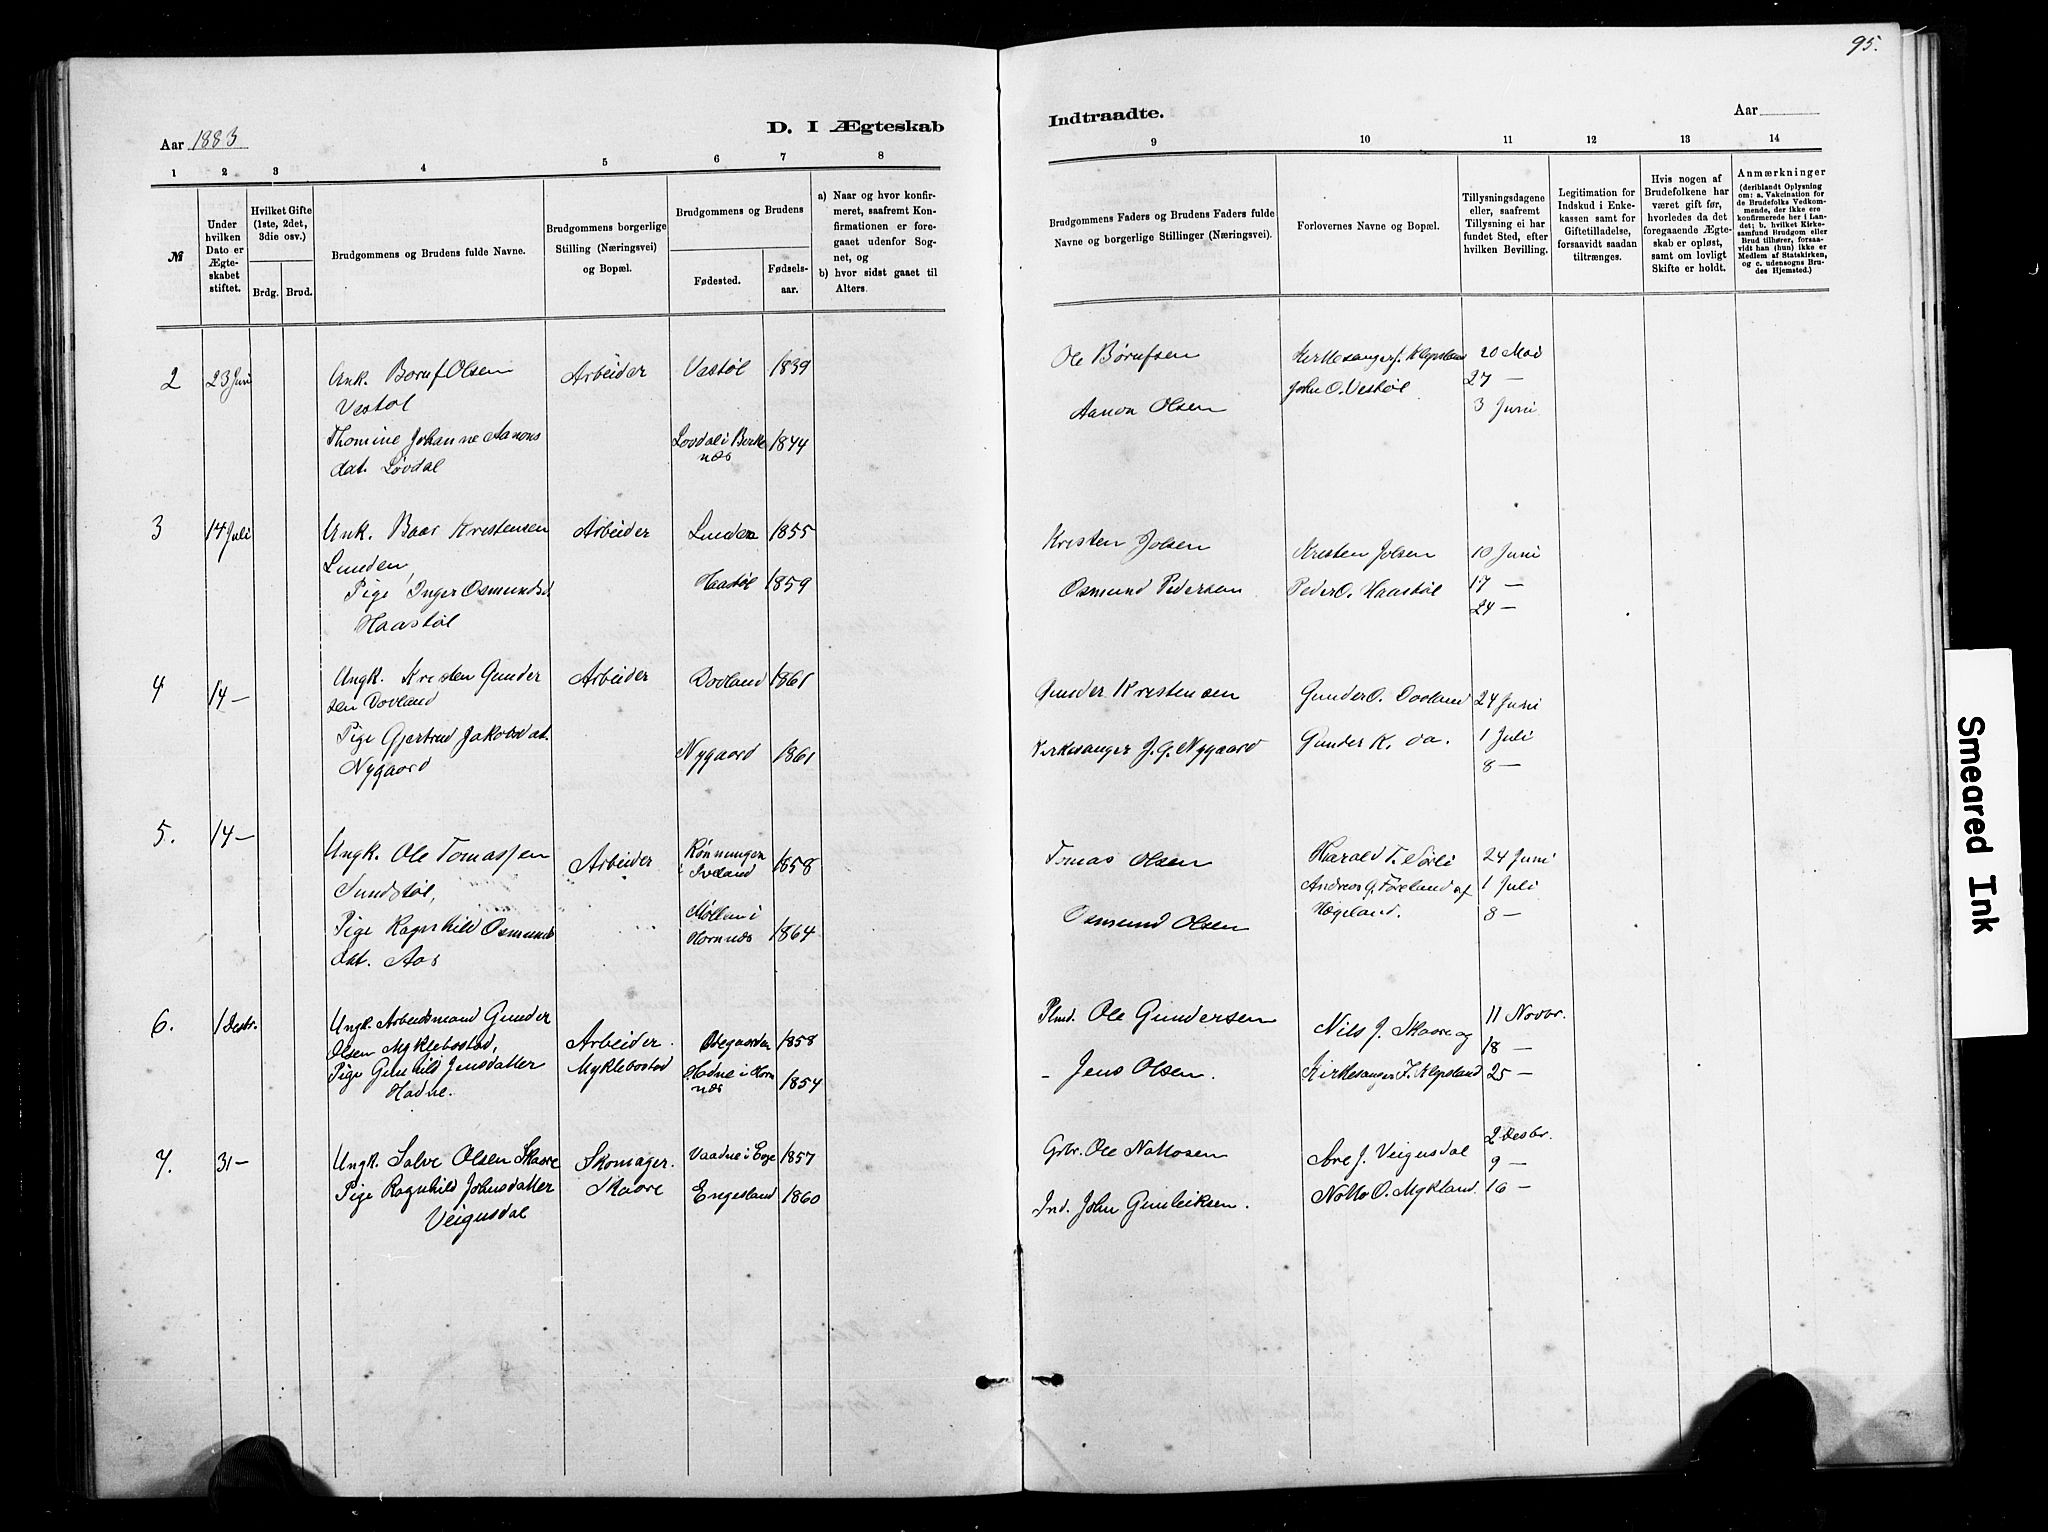 95.
Aar 1883
D. I Ægteskab
Indtraadte.
Aar
1 2 3 4 5 6 7 8
9 10 11 12 13 14
№
Under
hvilken
Dato er
Ægte-
skabet
stiftet.
Hvilket Gifte
(1ste, 2det,
3die osv.)
Brdg. Brud.
Brudgommens og Brudens fulde Navne.
Brudgommens borgerlige
Stilling (Næringsvei)
og Bopæl.
Brudgommens og Brudens
Fødested.
Fødsels-
aar.
a) Naar og hvor konfir-
meret, saafremt Kon-
firmationen er fore-
gaaet udenfor Sog-
net, og
b) hvor sidst gaaet til
Alters.
Brudgommens Faders og Brudens Faders fulde
Navne og borgerlige Stillinger (Næringsvei).
Forlovernes Navne og Bopæl.
Tillysningsdagene
eller, saafremt
Tillysning ei har
fundet Sted, efter
hvilken Bevilling.
Legitimation for
Indskud i Enke-
kassen samt for
Giftetilladelse,
forsaavidt saadan
tiltrænges.
Hvis nogen af
Brudefolkene har
været gift før,
hvorledes da det
foregaaende Ægte-
skab er opløst,
samt om lovligt
Skifte er holdt.
Anmærkninger
(deriblandt Oplysning
om: a. Vakcination for
de Brudefolks Vedkom-
mende, der ikke ere
konfirmerede her i Lan-
det; b. hvilket Kirke-
samfund Brudgom eller
Brud tilhører, forsaa-
vidt han (hun) ikke er
Medlem af Statskirken,
og c. udensogns Bru-
des Hjemsted.)
2 23 Juni Unk. Boruf Olsen Arbeider Vastøl 1839
Vestøl
Thomine Johanne Aanons Lovdal i Birke 1844
dat. Løvdal næs
Ole Børufsen Kirkesanger J. Klepsland 20 Mai
John O. Vestøl 27 —
Aanon Olsen 3 Juni
3 14 Juli Unk. Baar Kristensen Arbeider Lunden 1855
Lunden,
Pige Inger Osmundsd Haastøl 1859
Haastøl
Kristen Jolsen Kristen Jolsen 10 Juni
Osmund Pedersen Peder O. Haastøl 17 —
24 —
4 14 — Ungk. Kristen Gunder Arbeider Dovland 1861
sen Dovland
Pige Gjertrud Jakobsdat. Nygaard 1861
Nygaard
Gunder Kristensen Gunder O. Dovland 24 Juni
Kirkesanger J. G. Nygaard Gunder K. do. 1 Juli
8 —
5. 14 — Ungk. Ole Tomassen Arbeider Rønningen 1858
Sundstøl, i Iveland
Pige Ragnhild Osmunds Møllan i
dat. Aas Hornnæs 1864
Tomas Olsen Harald T. Sørli 24 Juni
Andreas G. Føreland af 1 Juli
Osmund Olsen Hægeland. 8 —
6. 1 Desbr. Ungk. Arbeidsmand Gunder
Olsen Myklebostad, Arbeider. Ødegaarden 1858
Pige Gunhild Jensdatter Myklebostad Hodne i Horn 1854
Hodne. næs
Plmd. Ole Gundersen Nils J. Skaare og 11 Novbr.
18 —
— Jens Olsen. Kirkesanger J. Klepsland 25 —
7. 31 — Ungk. Salve Olsen Skaare Skomager. Vaadne i Evje 1857
Pige Ragnhild Johnsdatter Skaare Engesland 1860
Veigusdal
Grbr. Ole Nottosen Are J. Veigusdal 2 Desbr.
9 —
Ind. John Gunleiksen. Notto O. Mykland 16 —
Smeared Ink